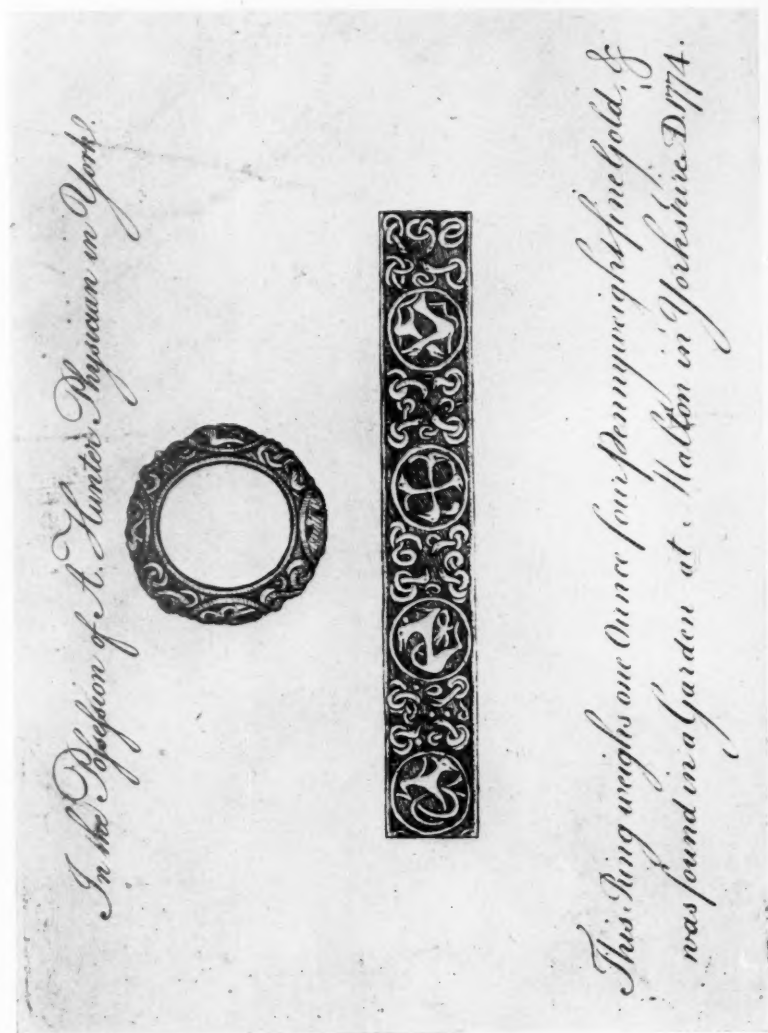 In the Poſseſsion of A. Hunter Physician in York.
This Ring weighs one Ounce four pennyweight fine Gold, &
was found in a Garden at Malton in Yorkshire. D. 1774.